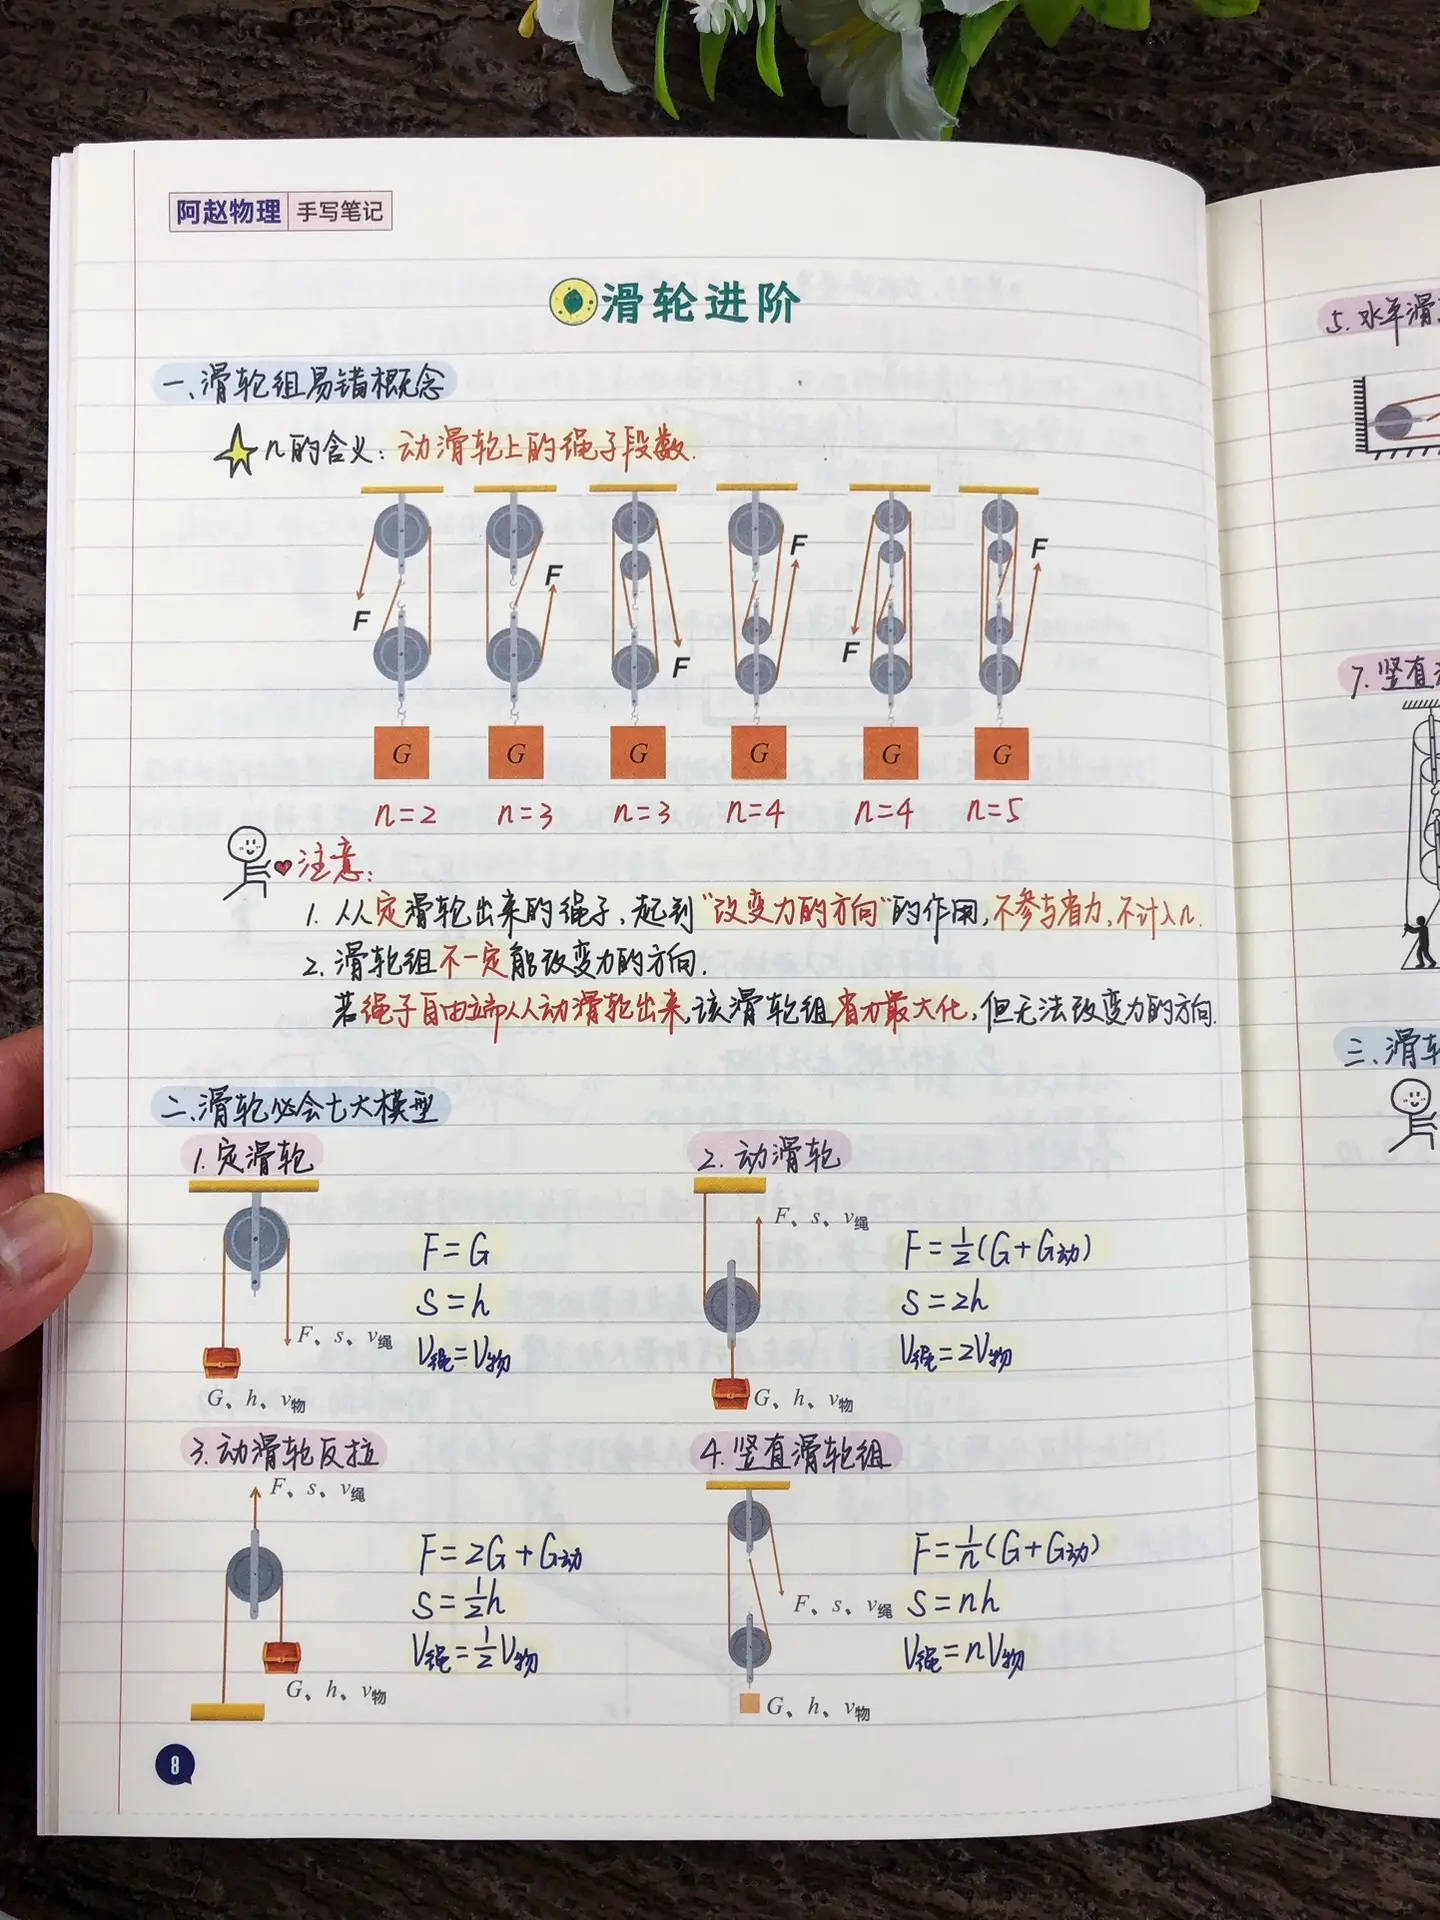 阿赵物理 手写笔记
滑轮进阶
一、滑轮组易错概念
n的含义：动滑轮上的绳子段数.
F F F F F F
G G G G G G
n=2 n=3 n=3 n=4 n=4 n=5
注意：
1. 从定滑轮出来的绳子，起到“改变力的方向”的作用，不参与省力，不计入n.
2. 滑轮组不一定能改变力的方向.
若绳子自由端从动滑轮出来，该滑轮组省力最大化，但无法改变力的方向.
二、滑轮必会七大模型
1. 定滑轮
F=G
S=h
V绳=V物
F、s、v绳
G、h、v物
2. 动滑轮
F、s、v绳
F=1/2(G+G动)
S=2h
V绳=2V物
G、h、v物
3. 动滑轮反拉
F、s、v绳
F=2G+G动
S=1/2h
V绳=1/2V物
G、h、v物
4. 竖直滑轮组
F=1/n(G+G动)
F、s、v绳
S=nh
V绳=nV物
G、h、v物
8
5. 水平滑
7. 竖直
三、滑轮